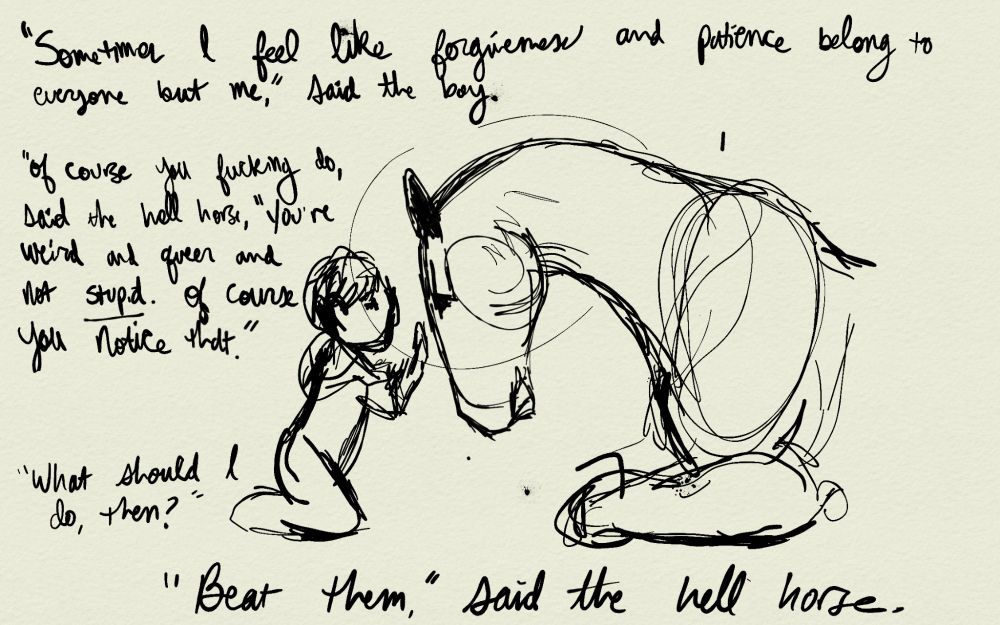 "Sometimes I feel like forgiveness and patience belong to
everyone but me," said the boy.
"Of course you fucking do,
said the hell horse, "You're
weird and queer and
not stupid. Of course
you notice that."
"What should I
do, then?"
"Beat them," said the hell horse.